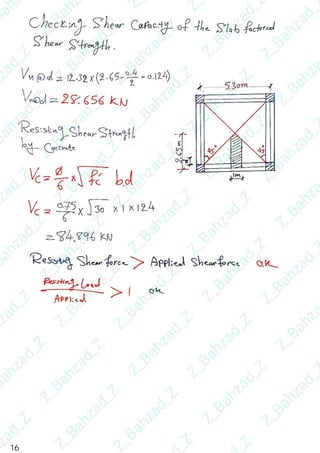 Checking Shear Capacity of the Slab factored
Shear Strength.
Vu@d = 12.32 x (2.65 - 0.4/2 - 0.124)
Vu@d = 28.656 KN
5.30m
Resisting Shear Strength
by Concrete
2.65m
45°
45°
1m
Vc = Ø/6 x √fc' b.d
Vc = 0.75/6 x √30 x 1 x 124
= 84.896 KN
Ressting Shear force > Applied Shear force ok
Ressting-Load / Applied > 1 ok
Z_Bahzad_Z
16